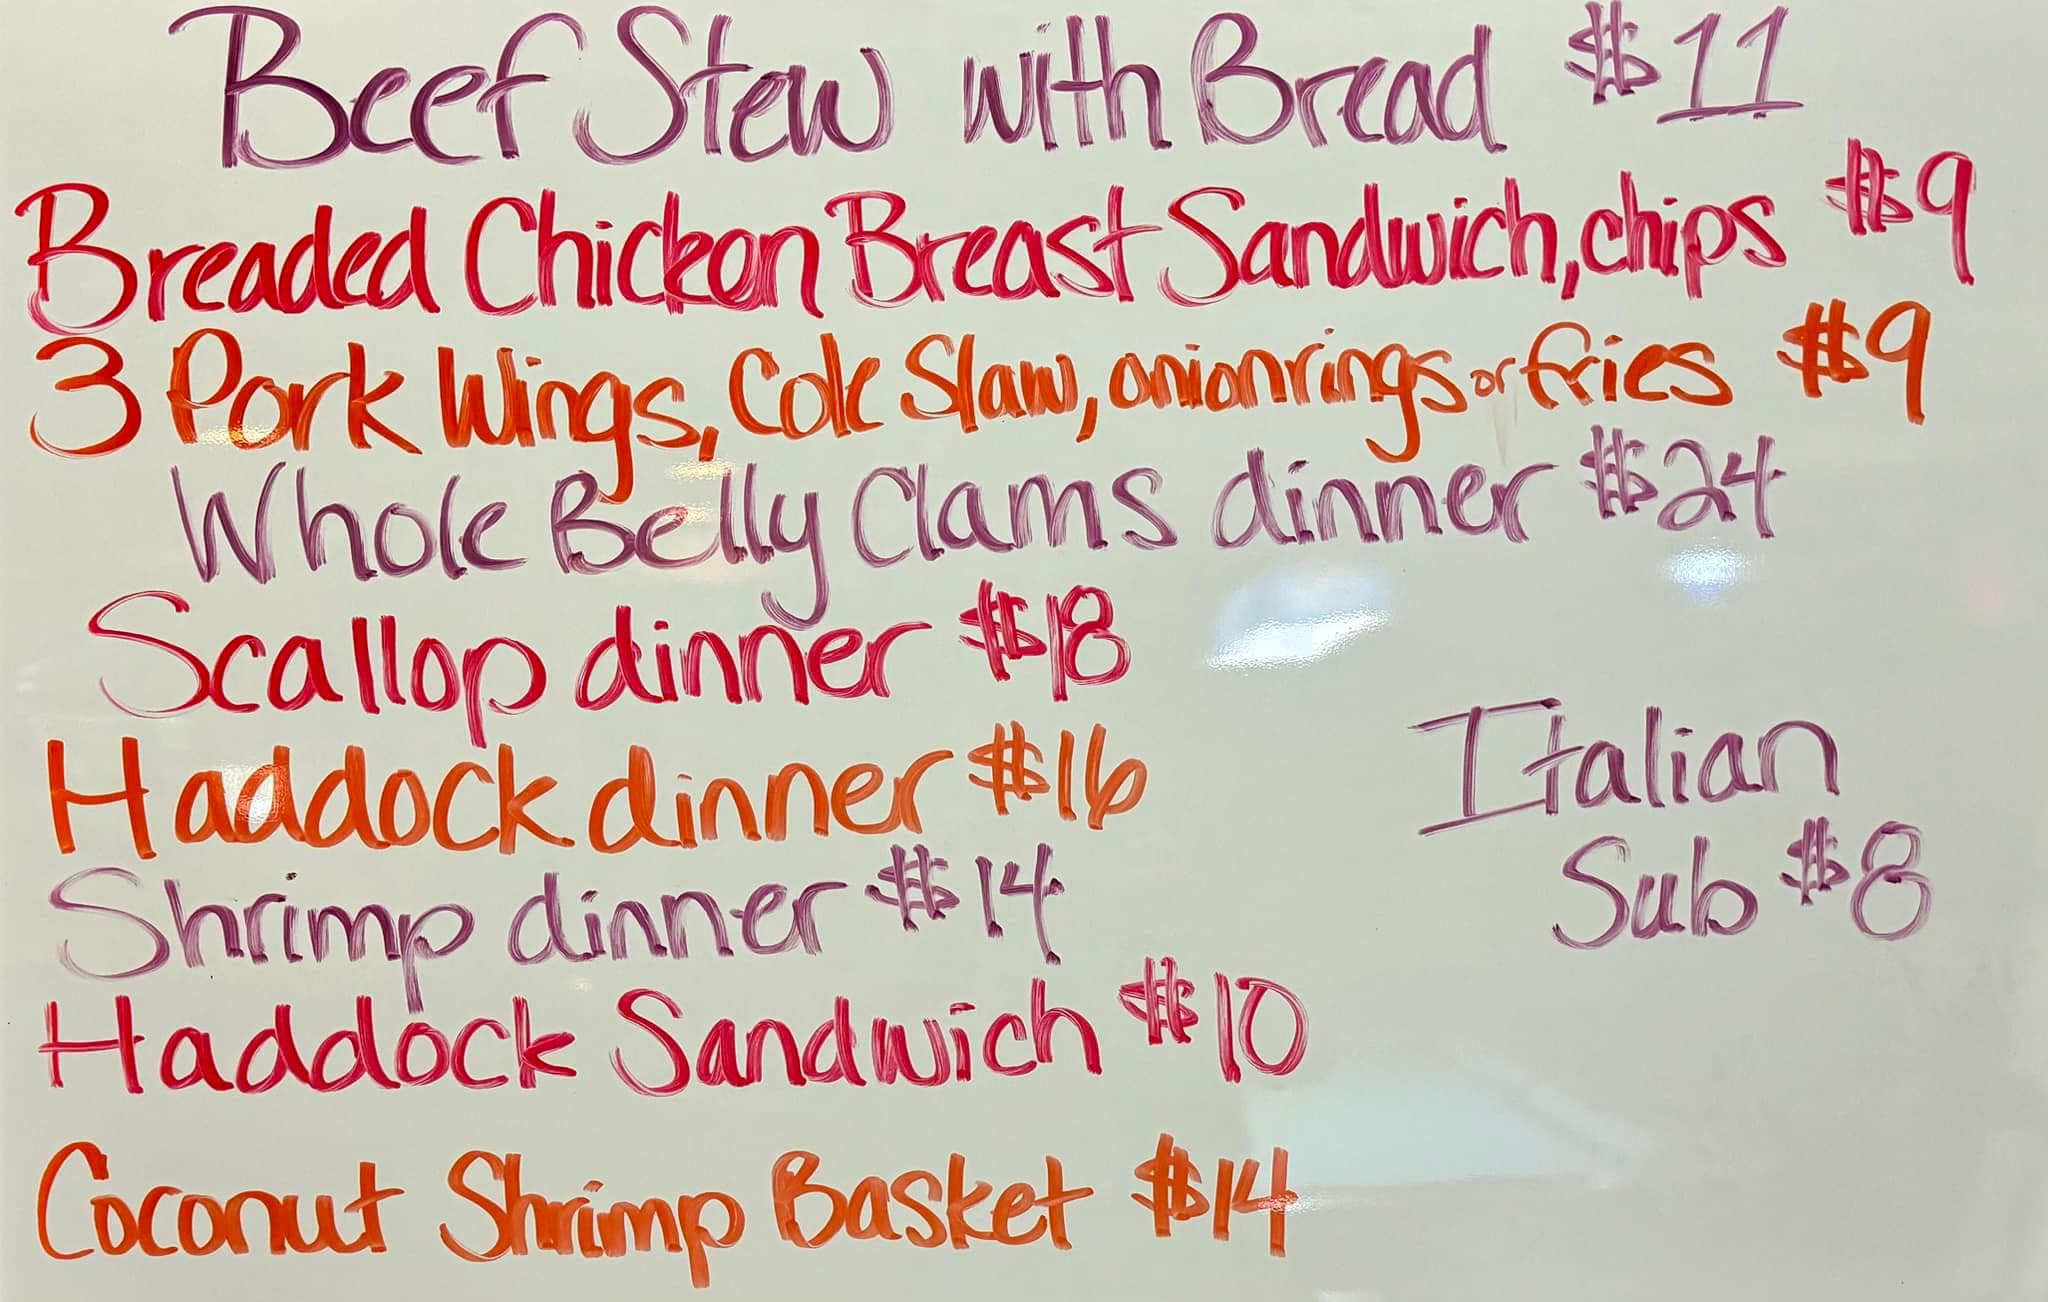 Beef Stew with Bread $11
Breaded Chicken Breast Sandwich, chips $9
3 Pork Wings, Cole Slaw, onion rings or fries $9
Whole Belly Clams dinner $24
Scallop dinner $18
Haddock dinner $16
Shrimp dinner $14
Haddock Sandwich $10
Coconut Shrimp Basket $14
Italian
Sub $8